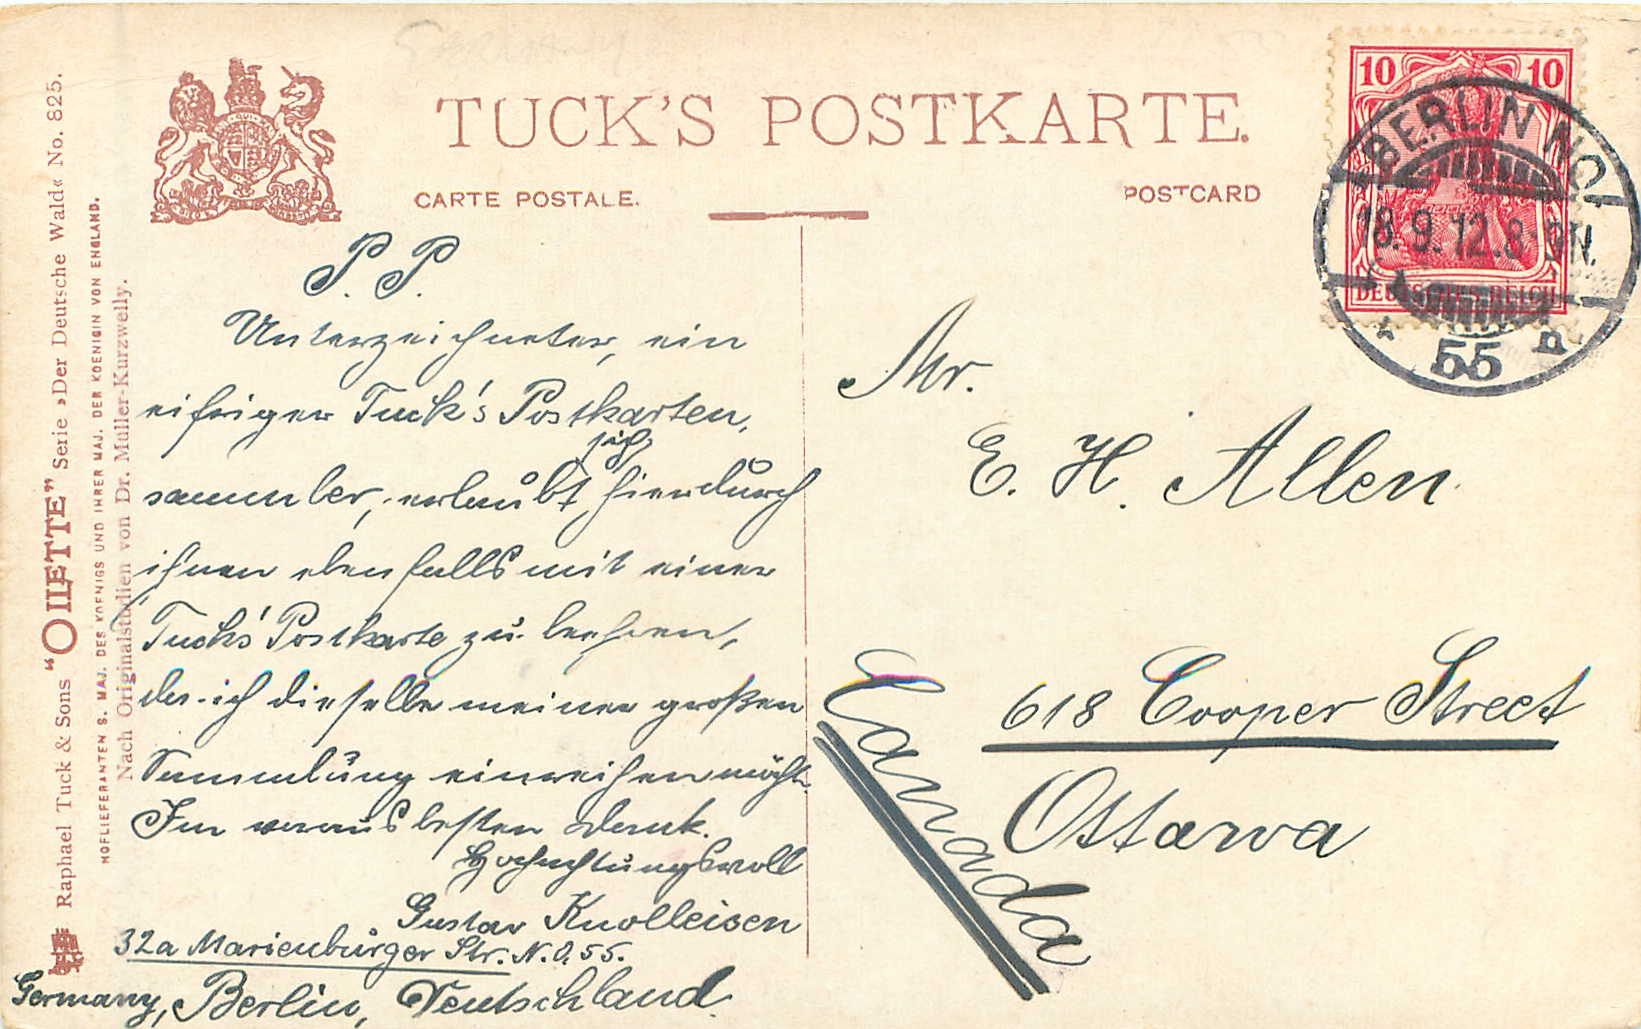 Germany
TUCK'S POSTKARTE.
CARTE POSTALE.
POSTCARD
Raphael Tuck & Sons “OILETTE” Serie »Der Deutsche Wald« No. 825.
HOFLIEFERANTEN S. MAJ. DES KOENIGS UND IHRER MAJ. DER KOENIGIN VON ENGLAND.
Nach Originalstudien von Dr. Müller-Kurzwelly.
10 10
DEUTSCHES REICH
BERLIN NO
18.9.12.8-9N.
* 55 n
P. P.
Unterzeichneter, ein
eifriger Tuck's Postkarten,
sich
sammler, erlaubt hierdurch
ihnen ebenfalls mit einer
Tuck's Postkarte zu beehren,
da ich dieselbe meiner großen
Sammlung einreihen möchte.
Im voraus besten Dank.
Hochachtungsvoll
Gustav Knolleisen
32a Marienburger Str. N.O.55.
Germany, Berlin, Deutschland.
Mr.
E. H. Allen
618 Cooper Street
Ottawa
Canada